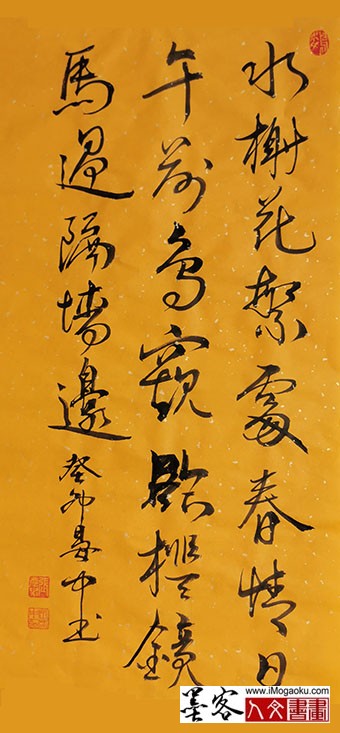 水榭花繁處春情日
午前鳥窺臨檻鏡
馬過隔墻邊
癸卯中书
墨客
www.iMogaoku.com
人文書畫